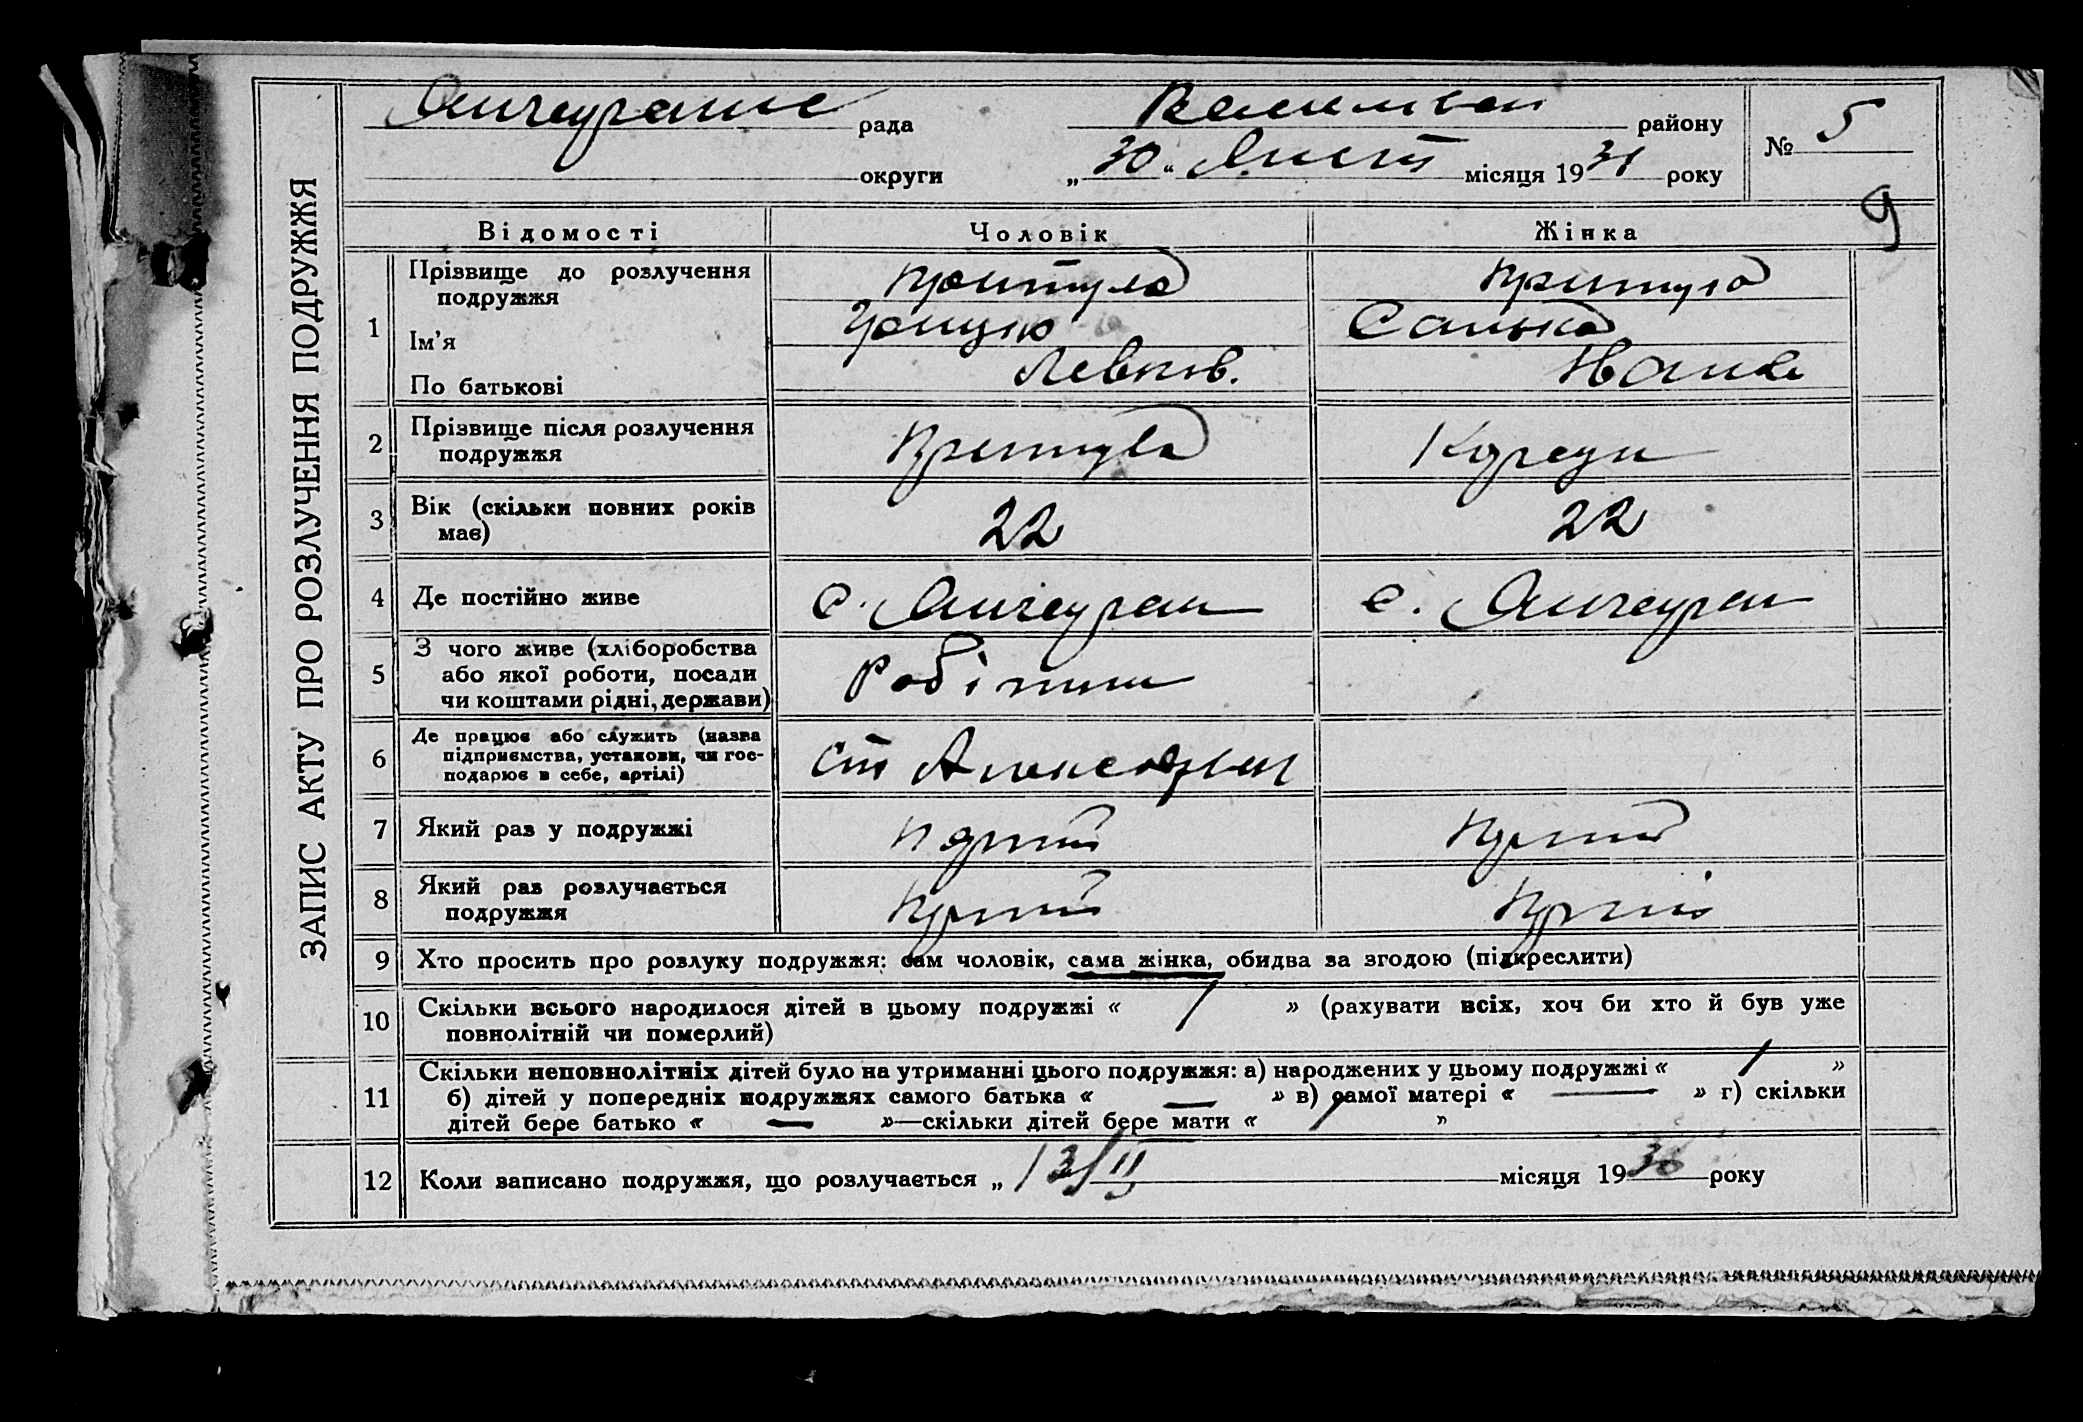 рада района району
№ 5
округи „ 30 “ Лист місяця 1931 року
9
ЗАПИС АКТУ ПРО РОЗЛУЧЕННЯ ПОДРУЖЖЯ
Відомості Чоловік Жінка
1 Прізвище до розлучення подружжя Притула Притула
Ім’я Грицко Санька
По батькові Левков. Иванов
2 Прізвище після розлучення подружжя Притула
3 Вік (скільки повних років має) 22 22
4 Де постійно живе с. Янчекрак с. Янчекрак
5 З чого живе (хліборобства або якої роботи, посади чи коштами рідні, держави) Робітник
6 Де працює або служить (назва підприємства, установи, чи господарює в себе, артілі) ст
7 Який раз у подружжі перший перший
8 Який раз розлучається подружжя перший перший
9 Хто просить про розлуку подружжя: сам чоловік, сама жінка, обидва за згодою (підкреслити)
10 Скільки всього народилося дітей в цьому подружжі « 1 » (рахувати всіх, хоч би хто й був уже
повнолітній чи померлий)
11 Скільки неповнолітніх дітей було на утриманні цього подружжя: а) народжених у цьому подружжі « 1 »
б) дітей у попередніх подружжях самого батька « — » в) самої матері « — » г) скільки
дітей бере батько « — »—скільки дітей бере мати « 1 »
12 Коли записано подружжя, що розлучається „ 13/II місяця 1930 року